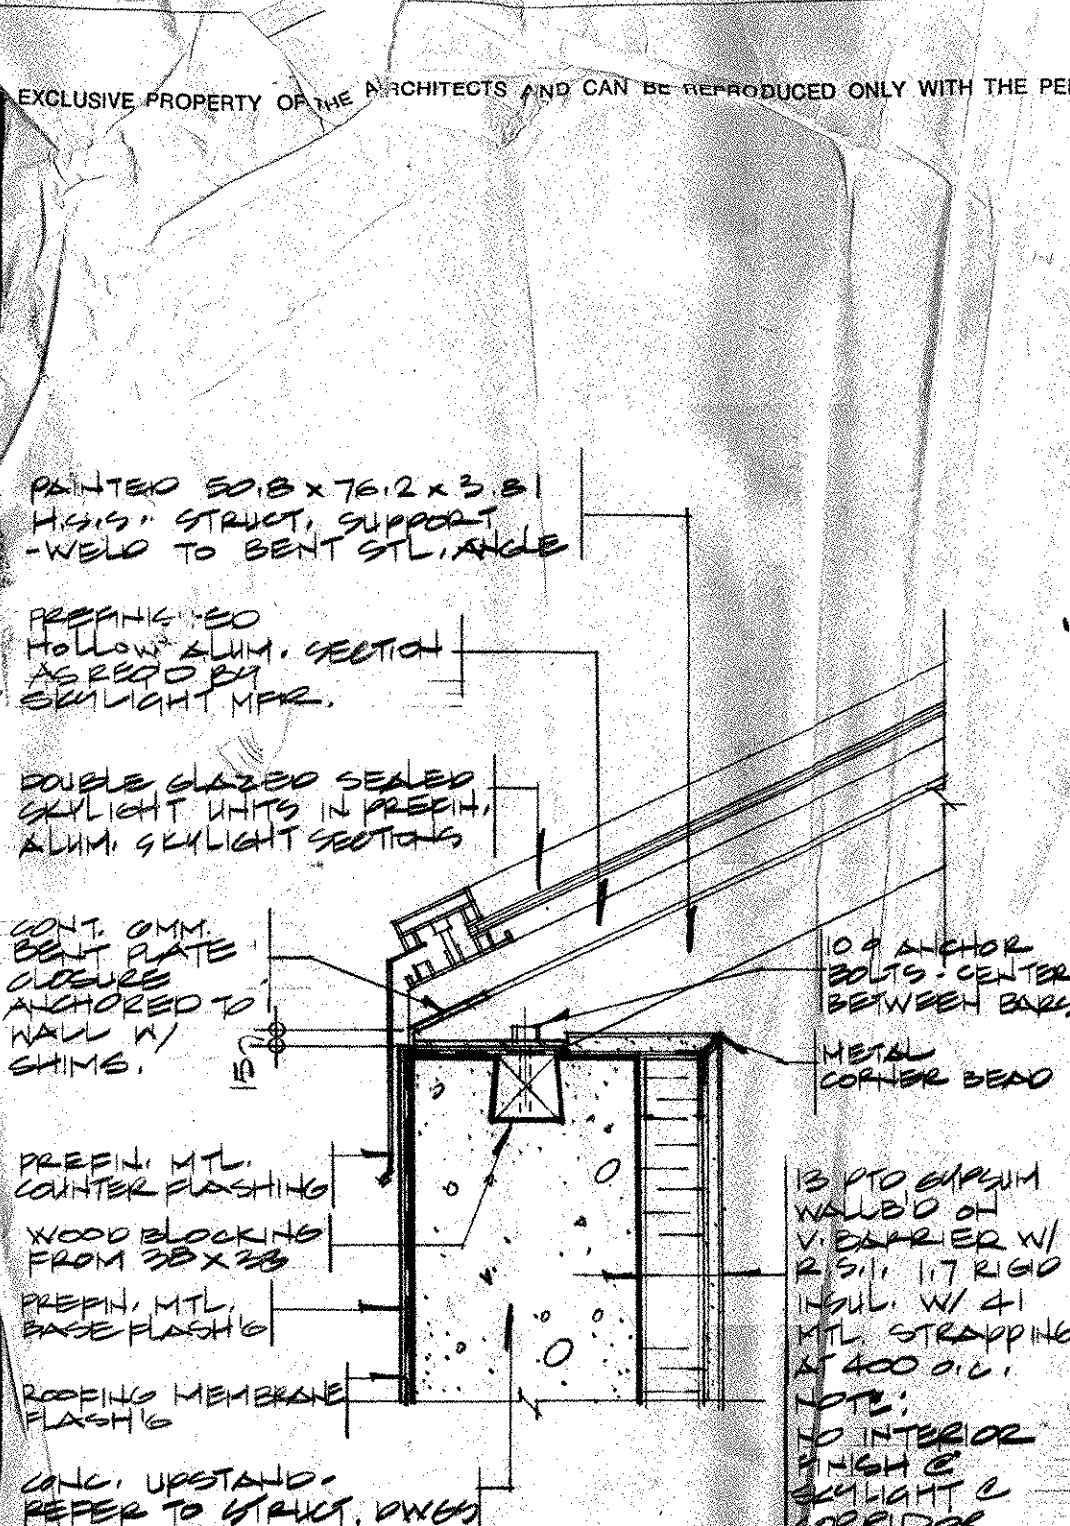 EXCLUSIVE PROPERTY OF THE ARCHITECTS AND CAN BE REPRODUCED ONLY WITH THE
PAINTED 50.8 x 76.2 x 3.81
H.S.S. STRUCT. SUPPORT
-WELD TO BENT STL. ANGLE
PREFINISHED
HOLLOW ALUM. SECTION
AS REQ'D BY
SKYLIGHT MFR.
DOUBLE GLAZED SEALED
SKYLIGHT UNITS IN PREFIN.
ALUM. SKYLIGHT SECTIONS
CONT. 6MM.
BENT PLATE
CLOSURE
ANCHORED TO
WALL W/
SHIMS.
15
PREFIN. MTL.
COUNTER FLASHING
WOOD BLOCKING
FROM 38 x 38
PREFIN. MTL.
BASE FLASH'G
ROOFING MEMBRANE
FLASH'G
CONC. UPSTAND.
REFER TO STRUCT. DWGS
ANCHOR
BOLTS - CENTER
BETWEEN BARS
METAL
CORNER BEAD
13 PTD GYPSUM
WALLB'D ON
V. BARRIER W/
R.S.I. 1.7 RIGID
INSUL. W/ 41
MTL. STRAPPING
AT 400 O.C.
NOTE:
NO INTERIOR
FINISH @
SKYLIGHT @
CORRIDOR